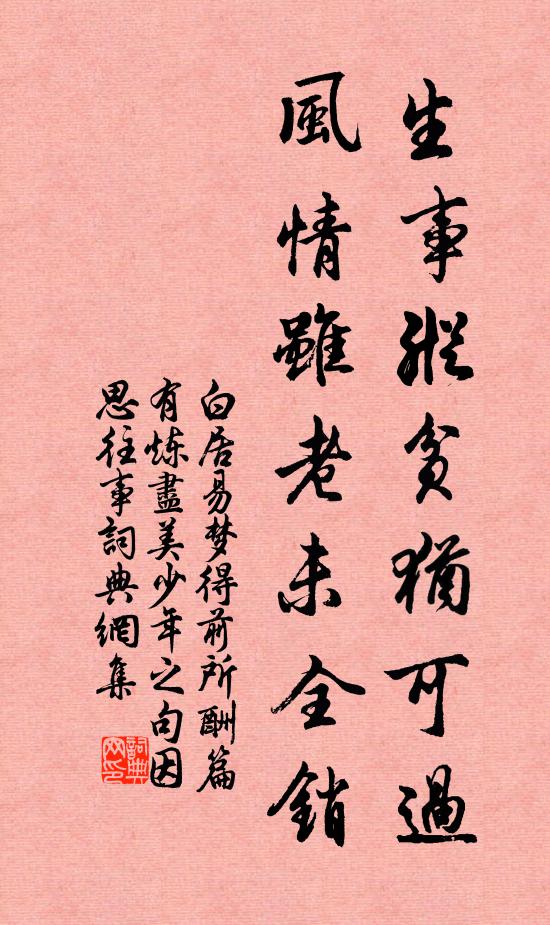 生事縱貧猶可過
風情雖老未全銷
白居易梦得前所酬篇
有炼盡美少年之句因
思往事詞典網集
詞典网印